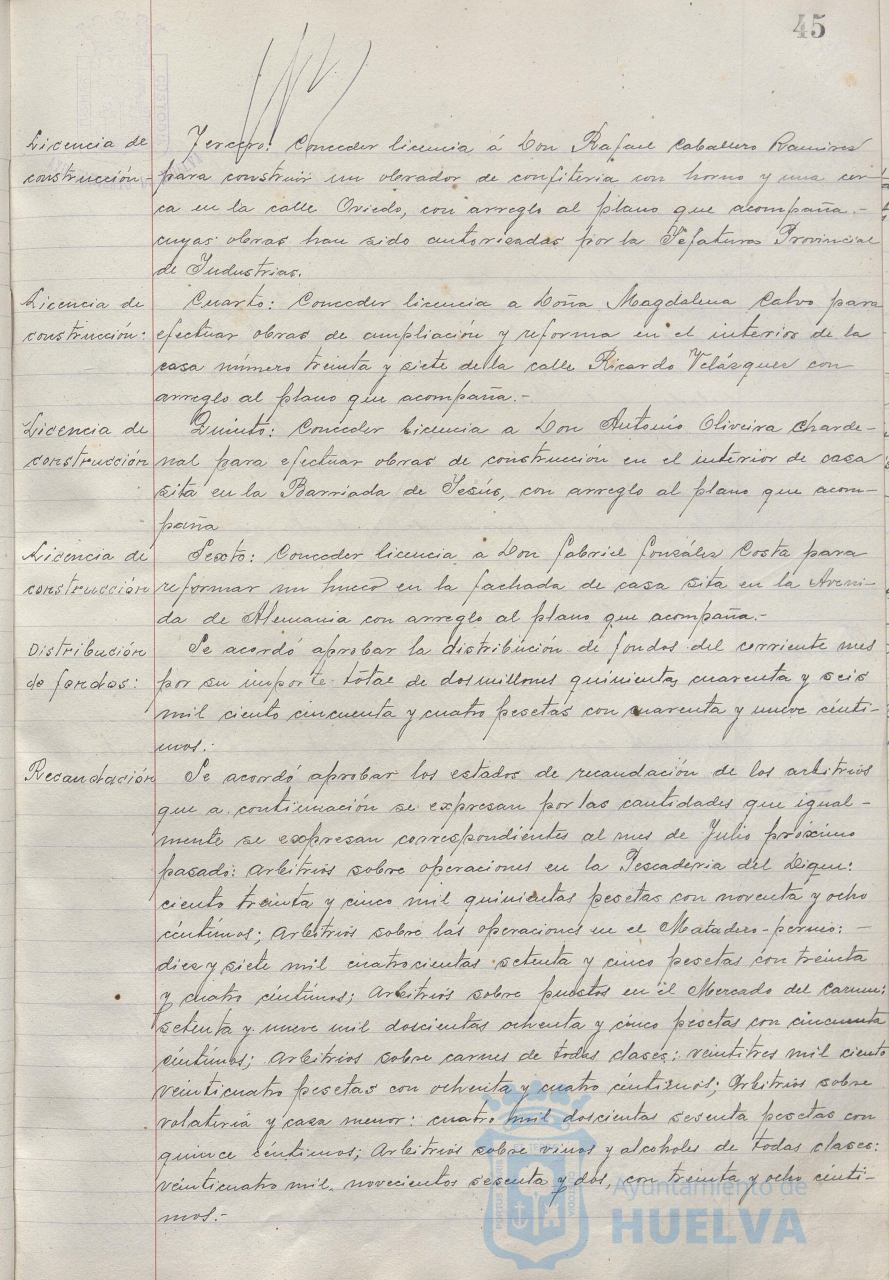 45
Licencia de
construcción.-
Tercero: Conceder licencia á Don Rafael Caballero Ramirez
para construir un obrador de confiteria con horno y una cer-
ca en la calle Oviedo, con arreglo al plano que acompaña.-
cuyas obras han sido autorizadas por la Jefatura Provincial
de Industrias.
Licencia de
construcción:
Cuarto: Conceder licencia a Doña Magdalena Calvo para
efectuar obras de ampliación y reforma en el interior de la
casa número treinta y siete de la calle Ricardo Velázquez con
arreglo al plano que acompaña.-
Licencia de
construcción
Quinto: Conceder licencia a Don Antonio Oliveira Charde-
nal para efectuar obras de construcción en el interior de casa
sita en la Barriada de Jesús, con arreglo al plano que acom-
paña
Licencia de
construcción
Sexto: Conceder licencia a Don Gabriel González Costa para
reformar un hueco en la fachada de casa sita en la Aveni-
da de Alemania con arreglo al plano que acompaña.-
Distribución
de fondos:
Se acordó aprobar la distribución de fondos del corriente mes
por su importe total de dos millones quinientas cuarenta y seis
mil ciento cincuenta y cuatro pesetas con cuarenta y nueve cénti-
mos.-
Recaudación
Se acordó aprobar los estados de recaudación de los arbitrios
que a continuación se expresan por las cantidades que igual-
mente se expresan correspondientes al mes de Julio próximo
pasado: Arbitrios sobre operaciones en la Pescaderia del Dique:
ciento treinta y cinco mil quinientas pesetas con noventa y ocho
céntimos; Arbitrios sobre las operaciones en el Matadero-permio: -
diez y siete mil cuatrocientas setenta y cinco pesetas con treinta
y cuatro céntimos; Arbitrios sobre puestos en el Mercado del Carmen:
setenta y nueve mil doscientas ochenta y cinco pesetas con cincuenta
céntimos; Arbitrios sobre carnes de todas clases: veintitres mil ciento
veinticuatro pesetas con ochenta y cuatro céntimos; Arbitrios sobre
volateria y casa menor: cuatro mil doscientas sesenta pesetas con
quince céntimos; Arbitrios sobre vinos y alcoholes de todas clases:
veinticuatro mil, novecientos sesenta y dos, con treinta y ocho cénti-
mos.-
Ayuntamiento de
HUELVA